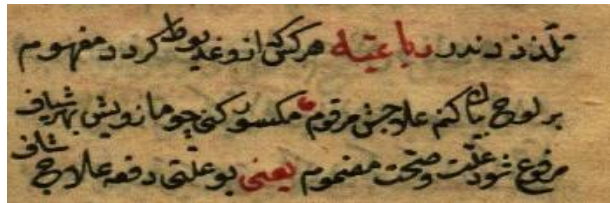 تلذذ دندر رباعیه هر کس که ازو غدیوط کردد مفهوم
بر لوح بیان کنم علاجش مرقوم مکسور کنی چو مازویش بهر شیاف
مرفوع شود علت و صحت مضموم یعنی بو علتی دفعه علاج شافی